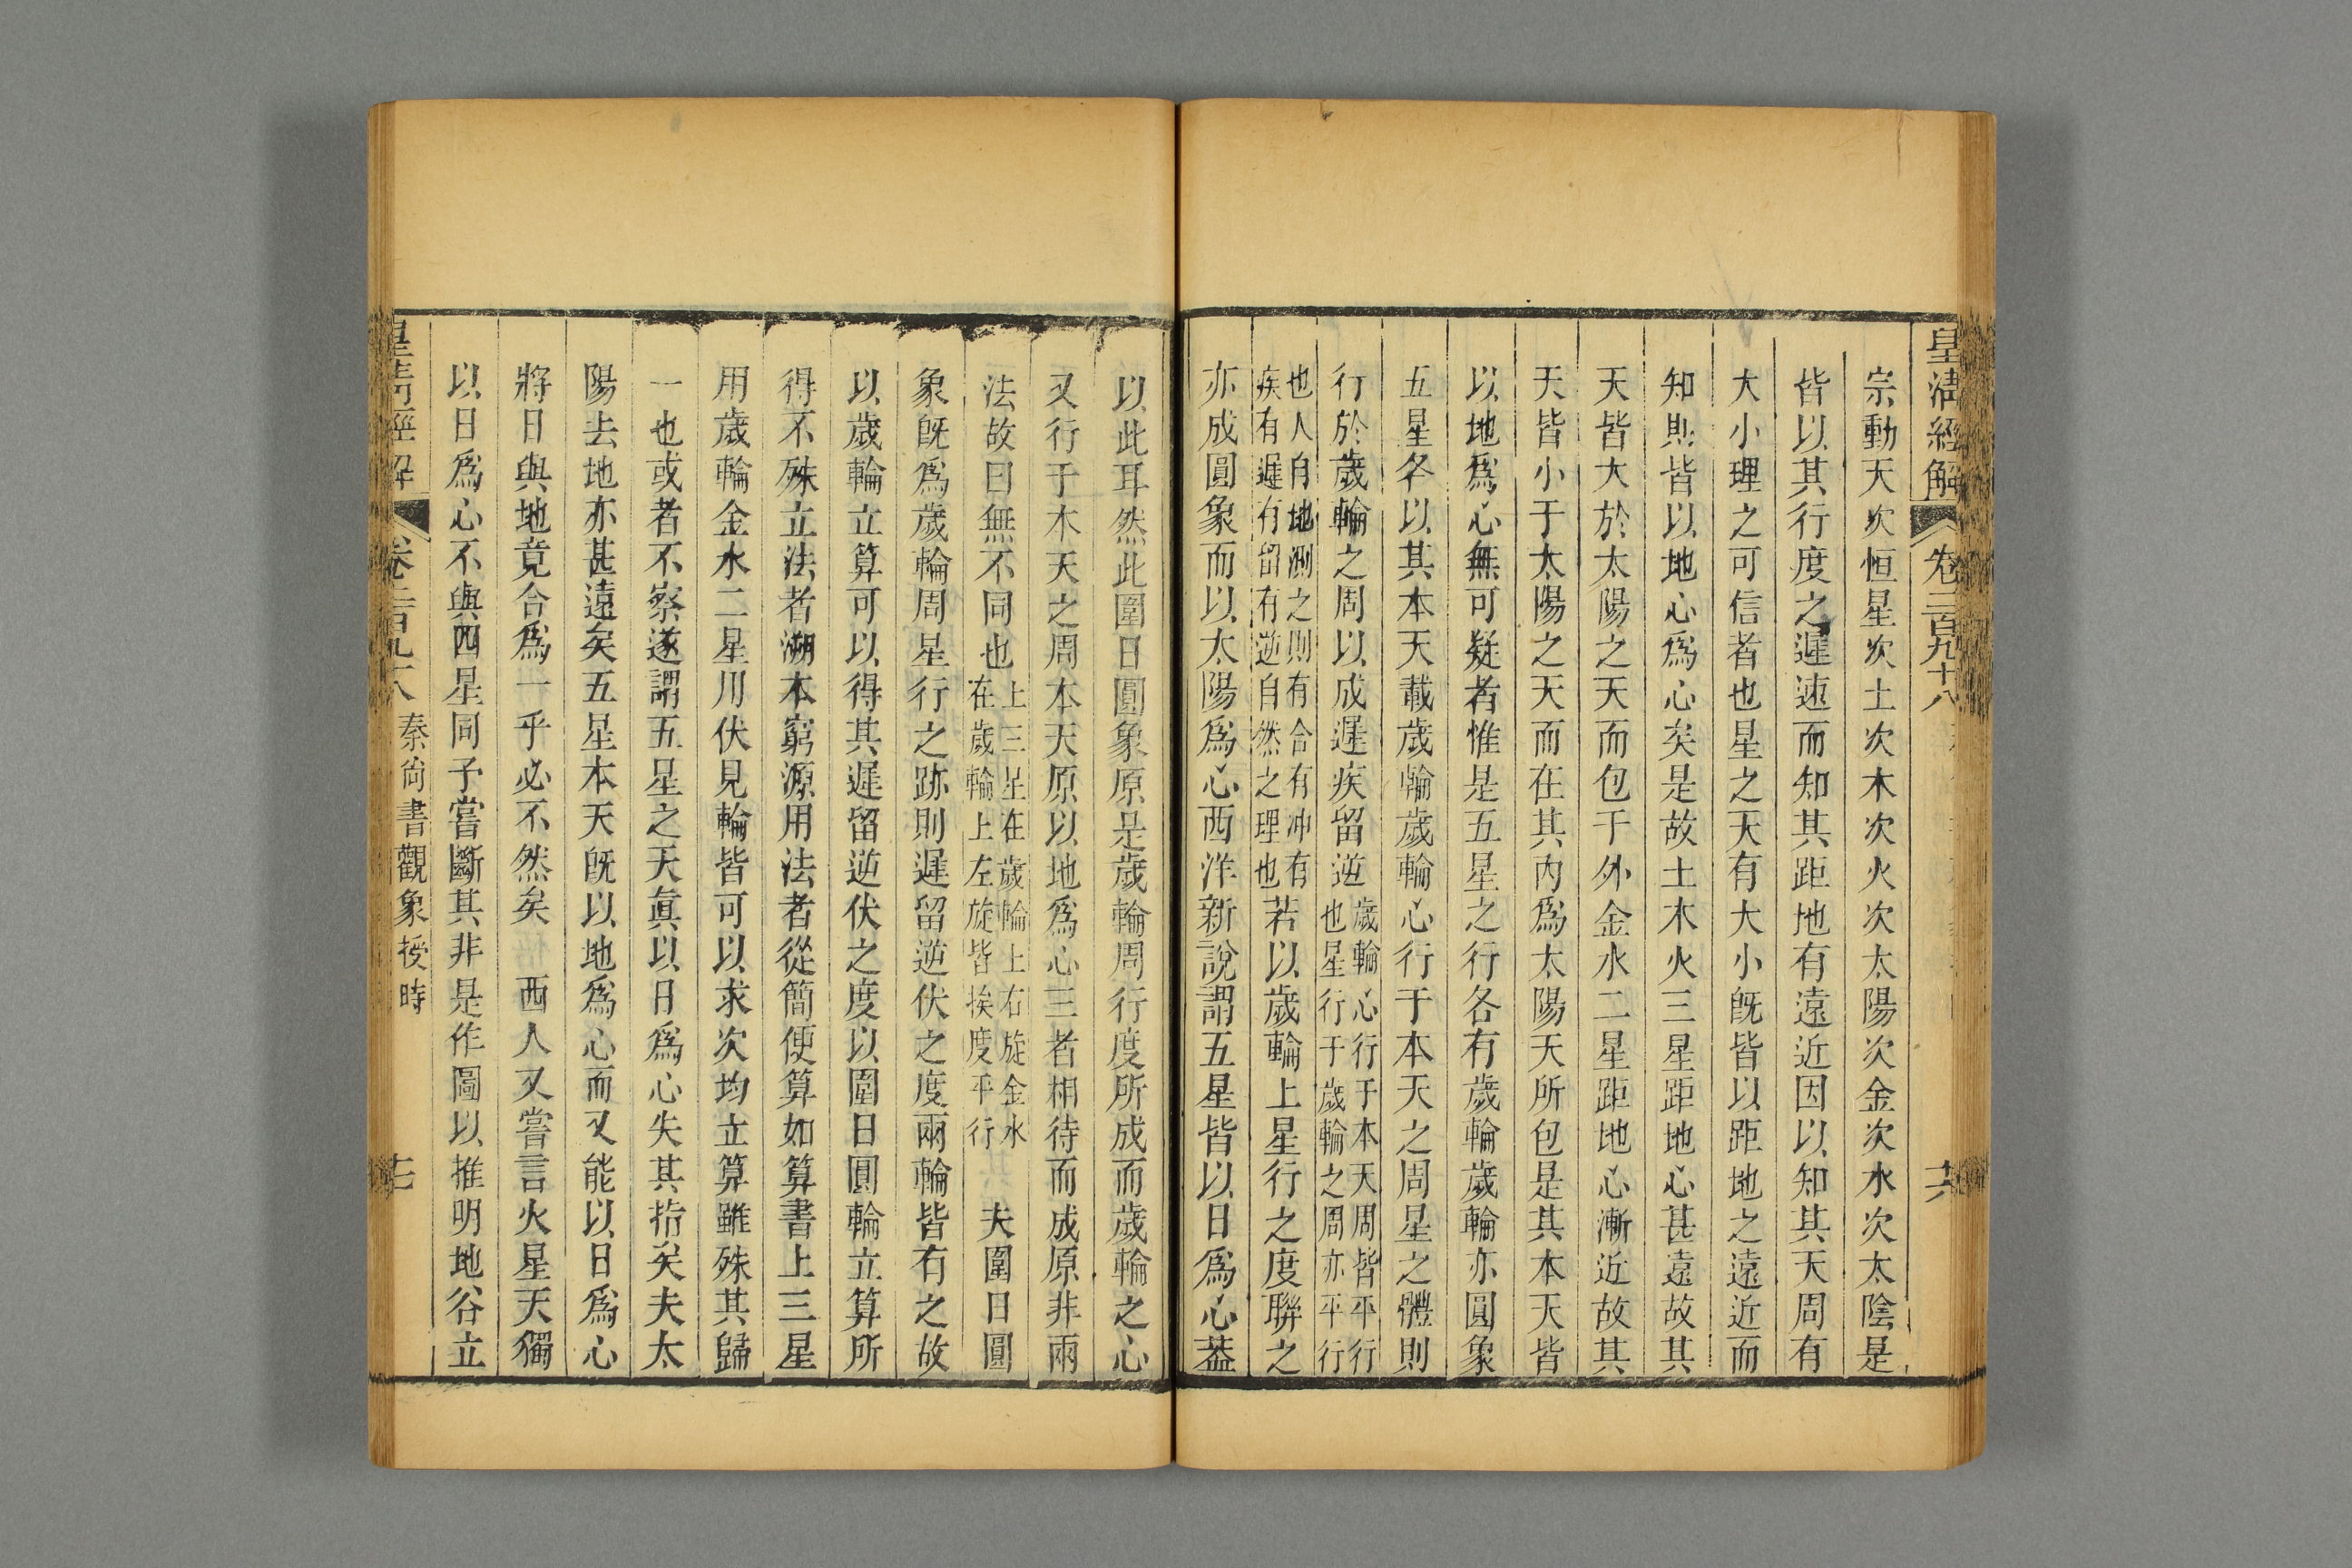 皇清經解 卷二百九十八 十六
宗動天次恒星次土次木次火次太陽次金次水次太陰是
皆以其行度之遲速而知其距地有遠近因以知其天周有
大小理之可信者也星之天有大小旣皆以距地之遠近而
知則皆以地心爲心矣是故土木火三星距地心甚遠故其
天皆大於太陽之天而包于外金水二星距地心漸近故其
天皆小于太陽之天而在其內爲太陽天所包是其本天皆
以地爲心無可疑者惟是五星之行各有歲輪歲輪亦圓象
五星各以其本天載歲輪歲輪心行于本天之周星之體則
行於歲輪之周以成遲疾留逆歲輪心行于本天周皆平行
也星行于歲輪之周亦平行
也人自地測之則有合有冲有
疾有遲有留有逆自然之理也若以歲輪上星行之度聯之
亦成圓象而以太陽爲心西洋新說謂五星皆以日爲心葢
以此耳然此圍日圓象原是歲輪周行度所成而歲輪之心
又行于木天之周本天原以地爲心三者相待而成原非兩
法故曰無不同也上三星在歲輪上右旋金水
在歲輪上左旋皆挨度平行 夫圍日圓
象旣爲歲輪周星行之跡則遲留逆伏之度兩輪皆有之故
以歲輪立算可以得其遲留逆伏之度以圍日圓輪立算所
得不殊立法者溯本窮源用法者從簡便算如算書上三星
用歲輪金水二星用伏見輪皆可以求次均立算雖殊其歸
一也或者不察遂謂五星之天眞以日爲心失其指矣夫太
陽去地亦甚遠矣五星本天旣以地爲心而又能以日爲心
將日與地竟合爲一乎必不然矣 西人又嘗言火星天獨
以日爲心不與四星同予嘗斷其非是作圖以推明地谷立
皇清經解 卷二百九十八 秦尙書觀象授時 十七